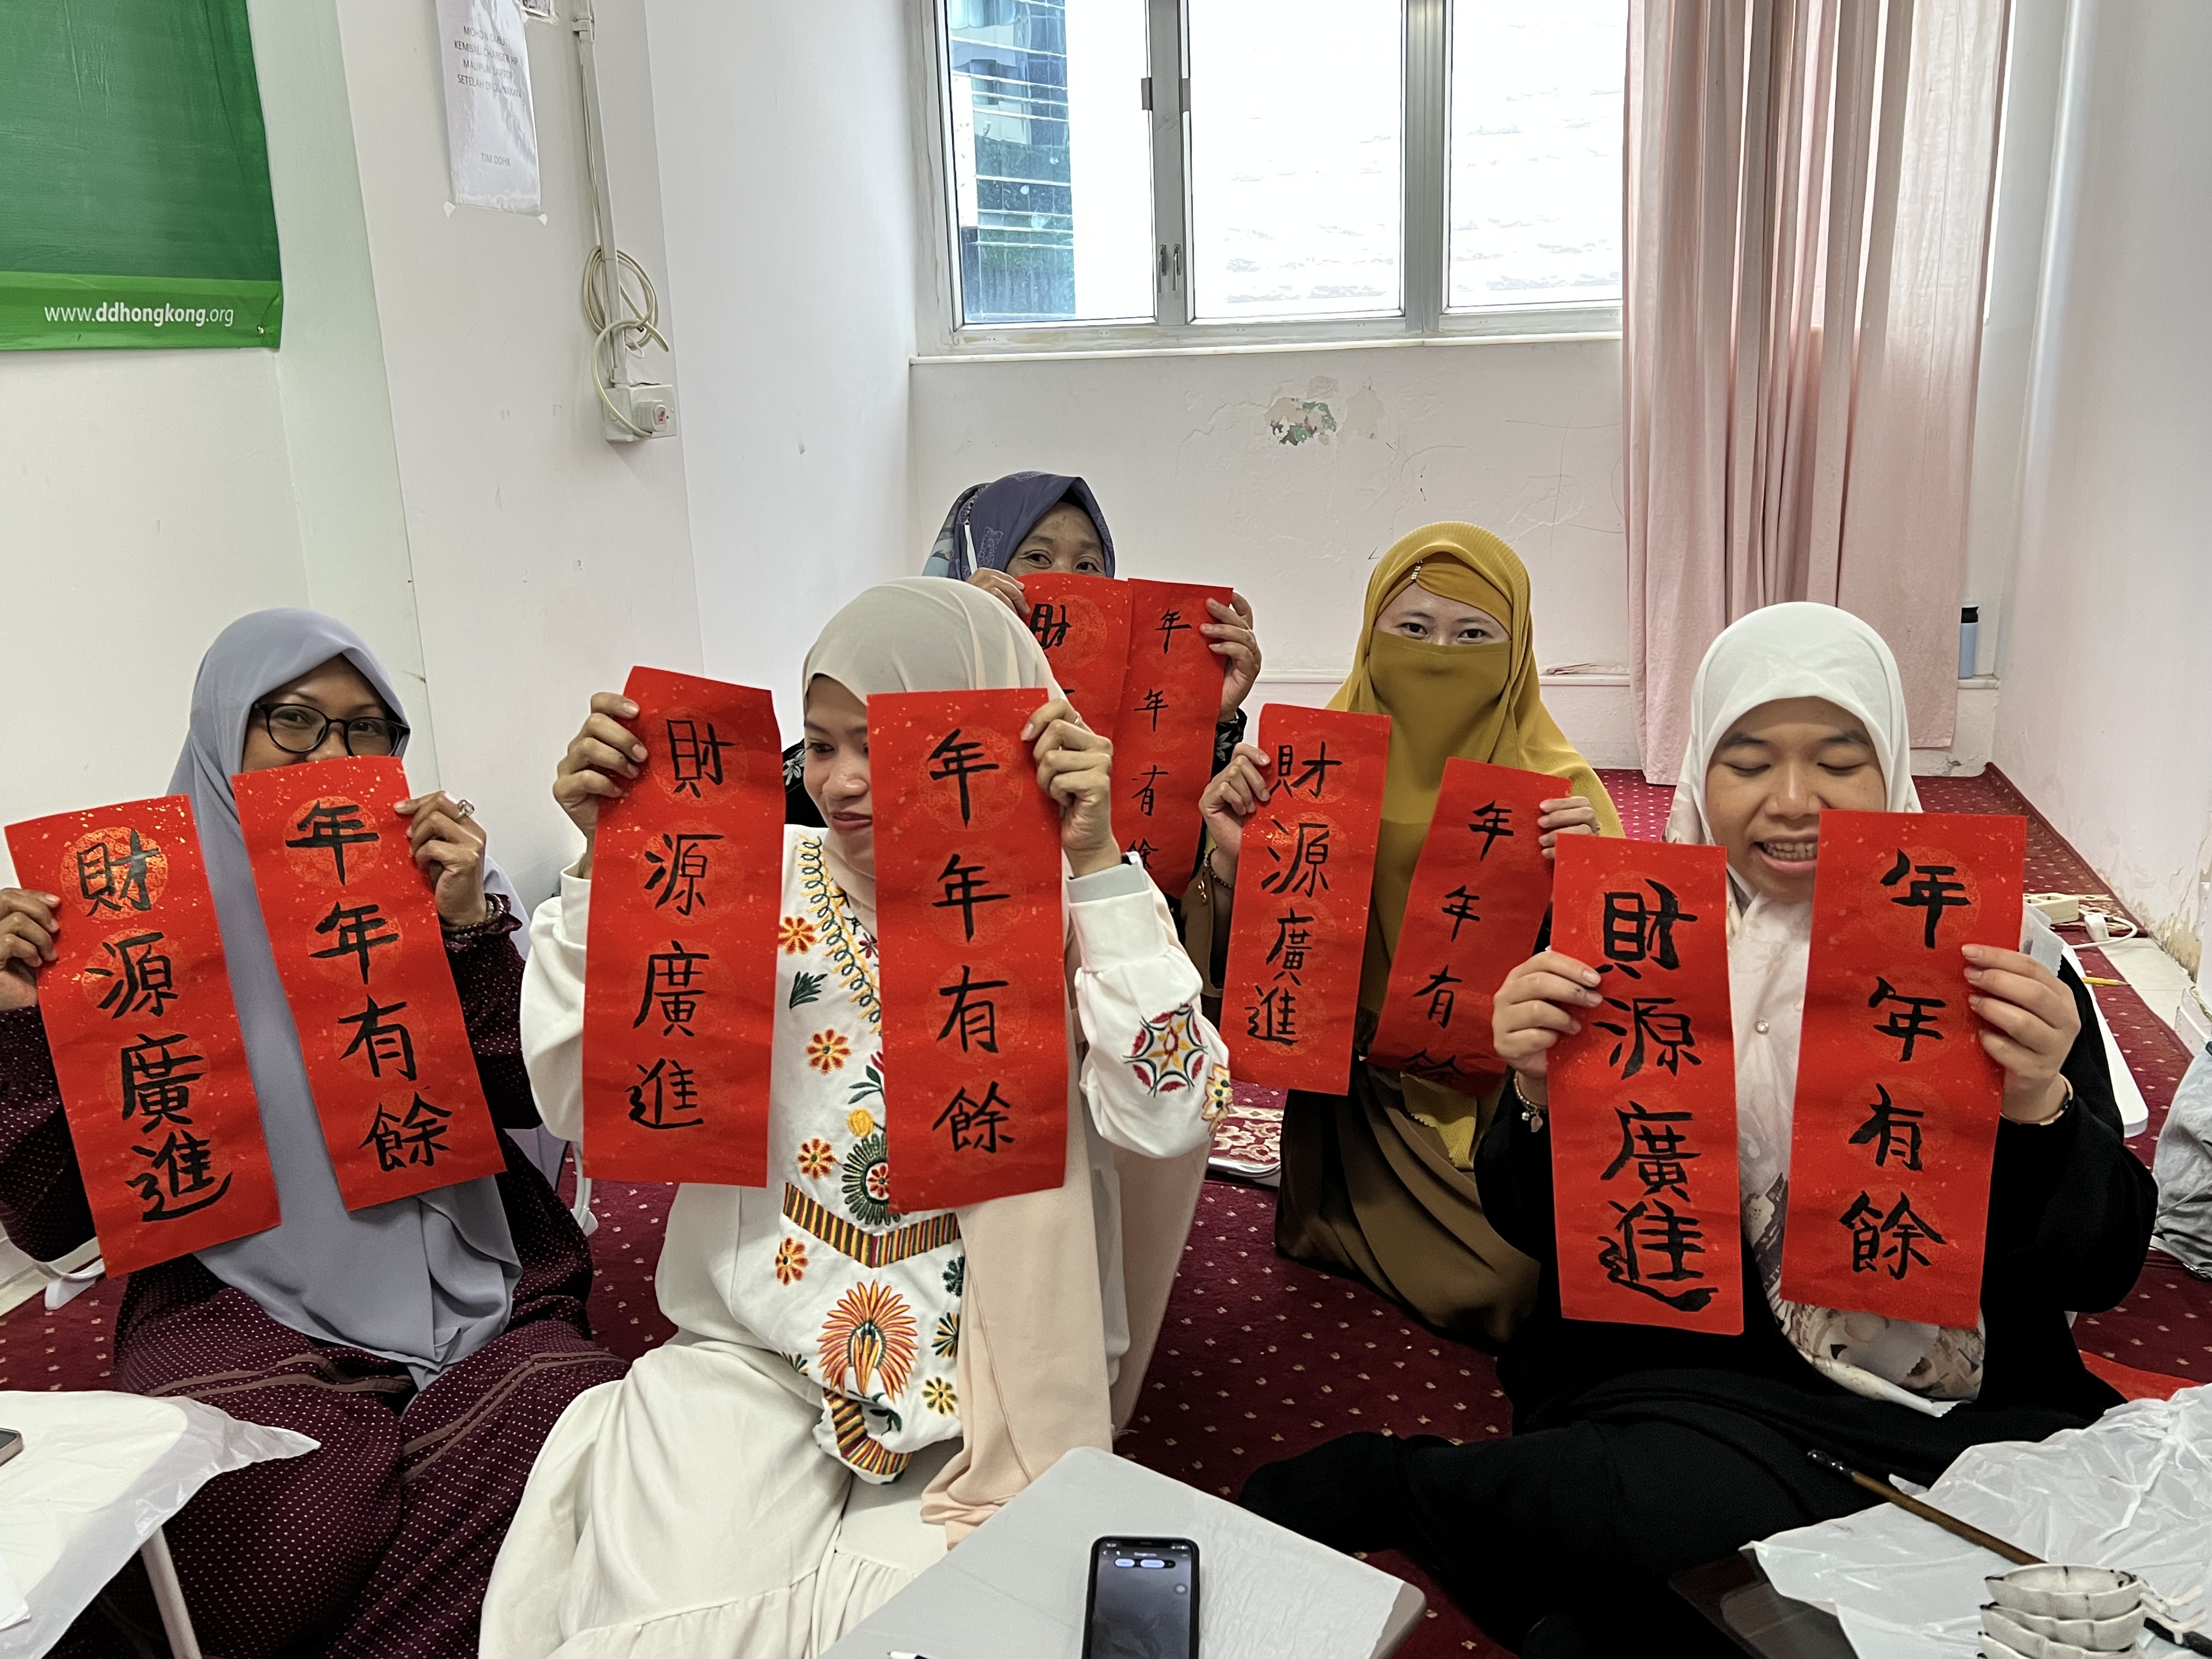 MOHON CABUT
KEMBALI CHARGER HP
MAUPUN LAPTOP
SETELAH DI GUNAKAN
TIM DDHK
www.ddhongkong.org
財源廣進
年年有餘
財源廣進
年年有餘
財
年年有餘
財源廣進
年年有餘
財源廣進
年年有餘